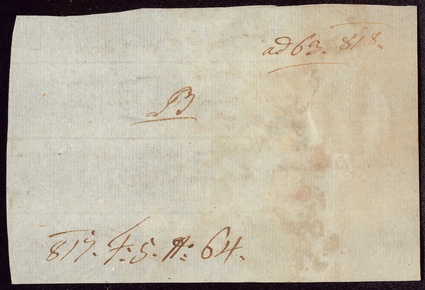 ad 63. 818.
B
817. 4. 5. A: 64.